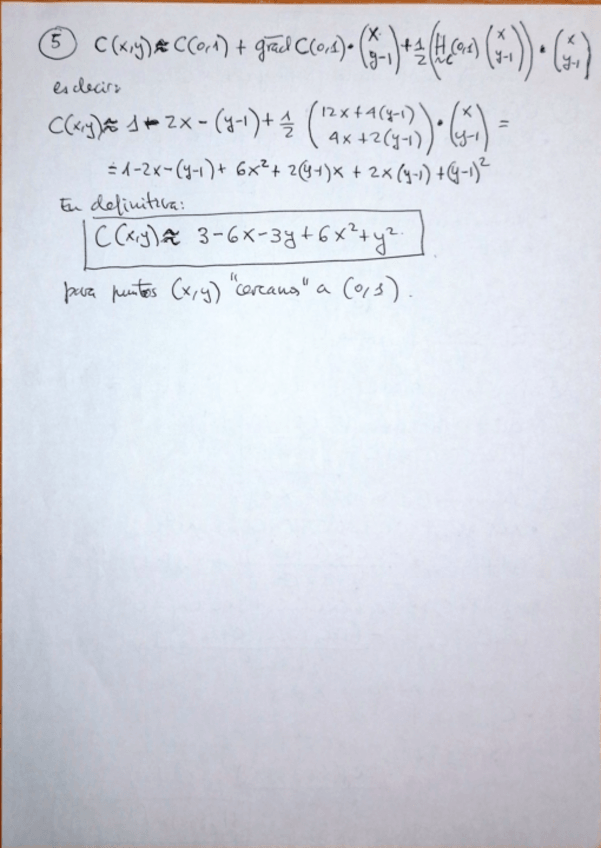 5 C(x,y) ≈ C(0,1) + grad C(0,1) • (x y-1) + 1/2 (H_C(0,1) (x y-1)) • (x y-1)
es decir:
C(x,y) ≈ 1 - 2x - (y-1) + 1/2 (12x+4(y-1) 4x+2(y-1)) • (x y-1) =
= 1-2x-(y-1) + 6x² + 2(y-1)x + 2x(y-1) + (y-1)²
En definitiva:
C(x,y) ≈ 3-6x-3y+6x²+y².
para puntos (x,y) "cercanos" a (0,1).